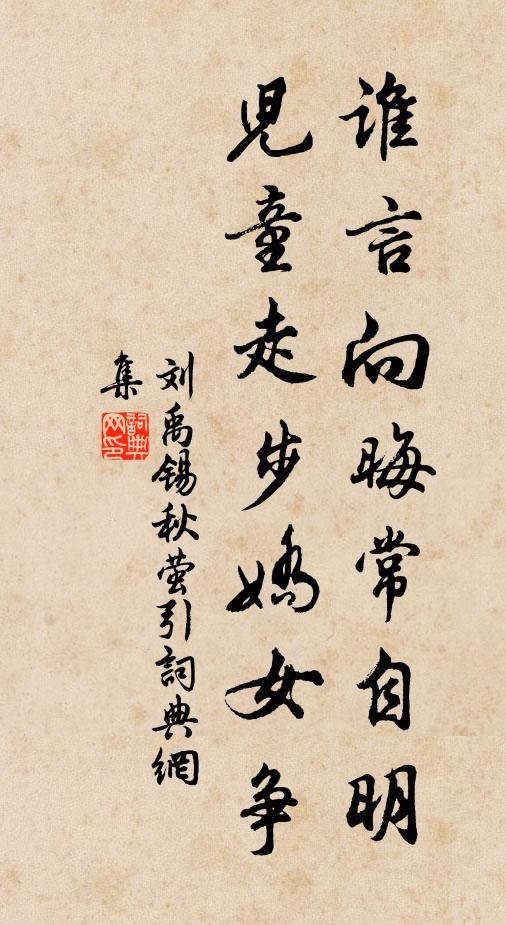 谁言向晦常自明
児童走步嬌女争
刘禹锡秋萤引詞典網
集
詞典网印